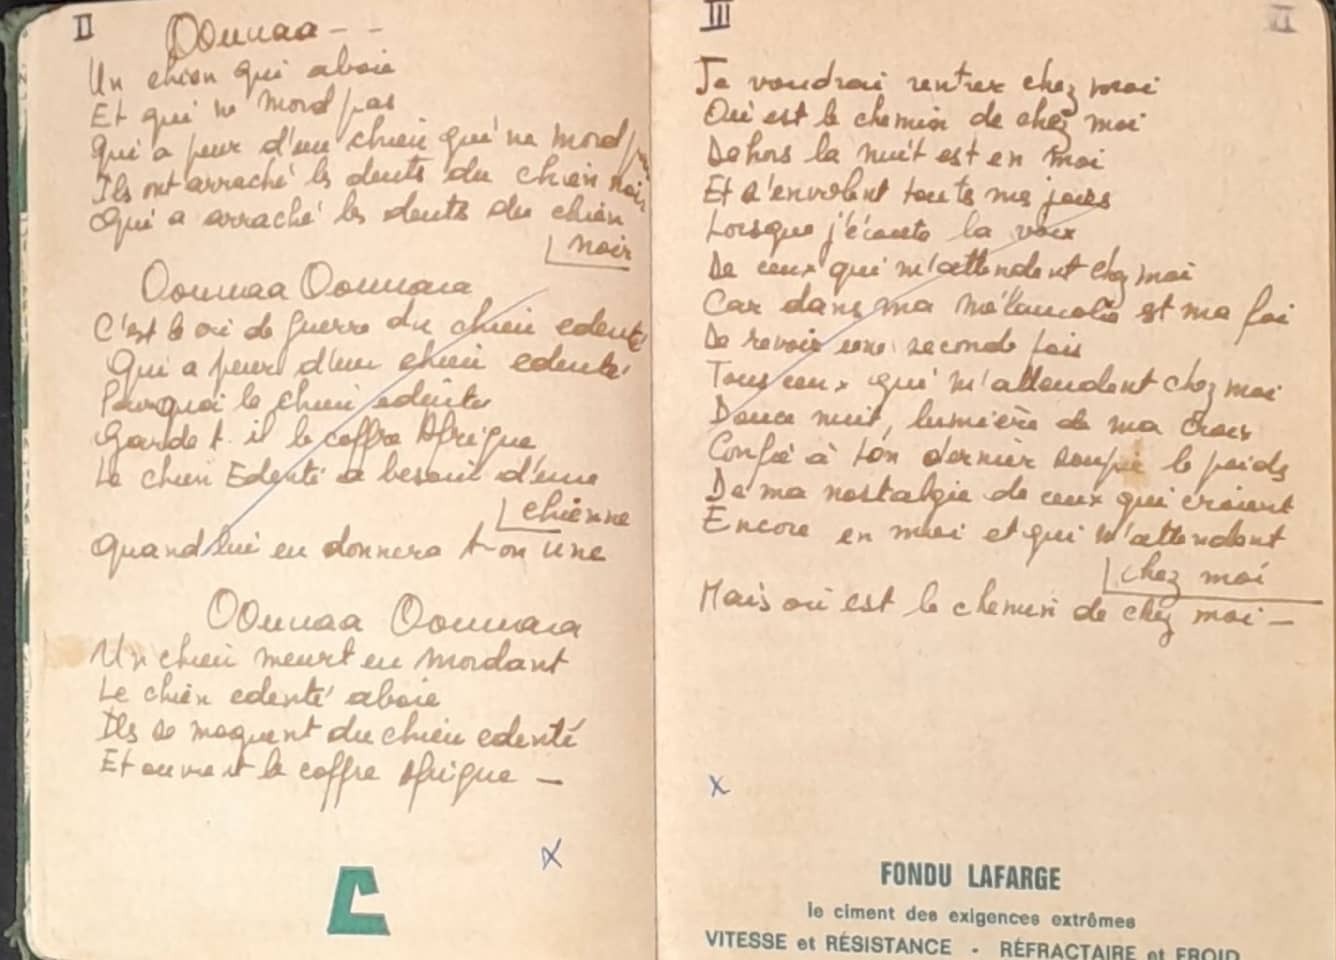 II
OOuuaa - -
Un chien qui aboie
Et qui ne mord pas
Qui a peur d'un chien qui ne mord pas
Ils ont arraché les dents du chien noir
Qui a arraché les dents du chien
noir
Oouuaa Oouuaa
C'est le cri de guerre du chien edenté
Qui a peur d'un chien edenté
Pourquoi le chien edenté
Garde t-il le coffre Afrique
Le chien Edenté a besoin d'une
chienne
Quand lui en donnera t-on une
OOuuaa Oouuaa
Un chien meurt en mordant
Le chien edenté aboie
Ils se moquent du chien edenté
Et ouvrent le coffre Afrique —
x
C
III
Je voudrai rentrer chez moi
Où est le chemin de chez moi
Dehors la nuit est en moi
Et s'envolent toutes mes joies
Lorsque j'écoute la voix
De ceux qui m'attendent chez moi
Car dans ma mélancolie est ma foi
De revoir une seconde fois
Tous ceux qui m'attendent chez moi
Douce nuit, lumière de ma croix
Confie à ton dernier soupir le poids
De ma nostalgie de ceux qui croient
Encore en moi et qui m'attendent
chez moi
Mais où est le chemin de chez moi —
x
FONDU LAFARGE
le ciment des exigences extrêmes
VITESSE et RÉSISTANCE - RÉFRACTAIRE et FROID